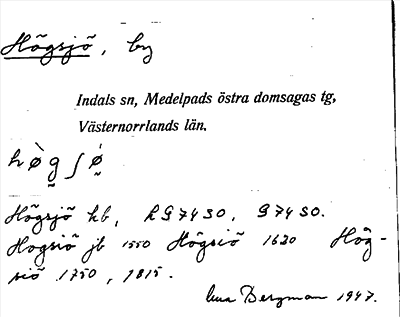 Högsjö, by
Indals sn, Medelpads östra domsagas tg,
Västernorrlands län.
Högsjö hb, h G 74 SO, G 74 SO.
Hogsiö jb 1550 Högsiö 1620 Hög-
siö 1750, 1815.
Bergman 1947.